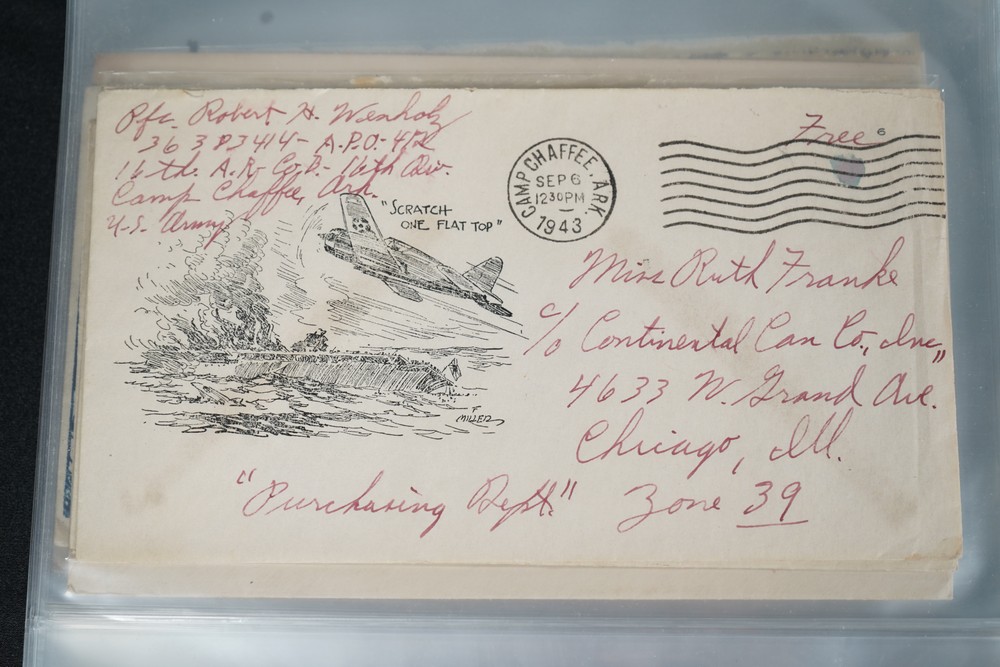 Pfc. Robert H. Wenholz
36383414 - A.P.O. - 412
16th. A.R. Co. B - 16th Div.
Camp Chaffee, Ark.
U.S. Army
"SCRATCH
ONE FLAT TOP"
T. MILLER
CAMP CHAFFEE, ARK
SEP 6
12 30 PM
1943
Free 6
Miss Ruth Franke
c/o Continental Can Co., Inc.,
4633 W. Grand Ave.
Chicago, Ill.
"Purchasing Dept." Zone 39